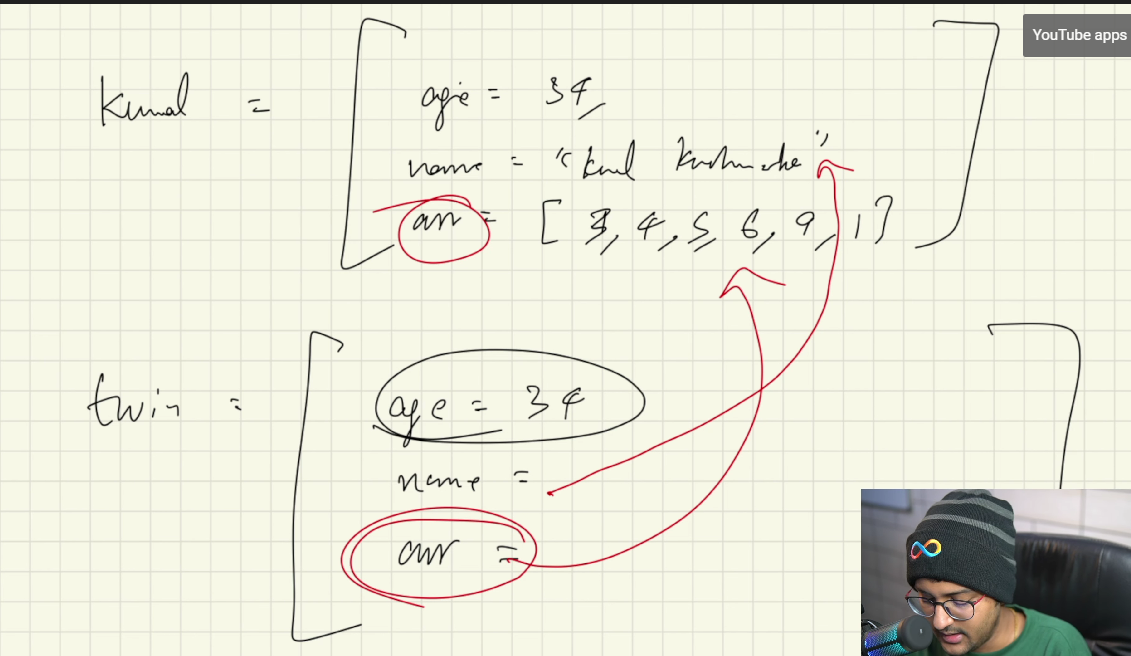 YouTube apps
Kunal =
age = 34,
name = "Kunal Kushwaha"
arr = [3, 4, 5, 6, 9, 1]
twin =
age = 34
name =
arr =